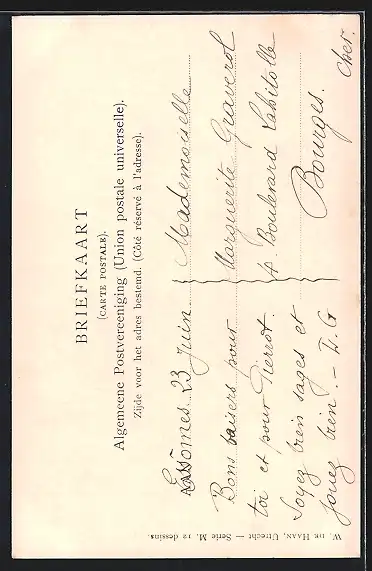 BRIEFKAART
(CARTE POSTALE).
Algemeene Postvereeniging (Union postale universelle).
Zijde voor het adres bestemd. (Côté réservé à l'adresse).
23 Juin
Bons baisers pour
toi et pour Pierrot.
Soyez bien sages et
jouez bien. – L. G
Mademoiselle
Marguerite Graverol
4 Boulevard Lahitolle
Bourges.
Cher.
W. DE HAAN, Utrecht — Serie M. 12 dessins.